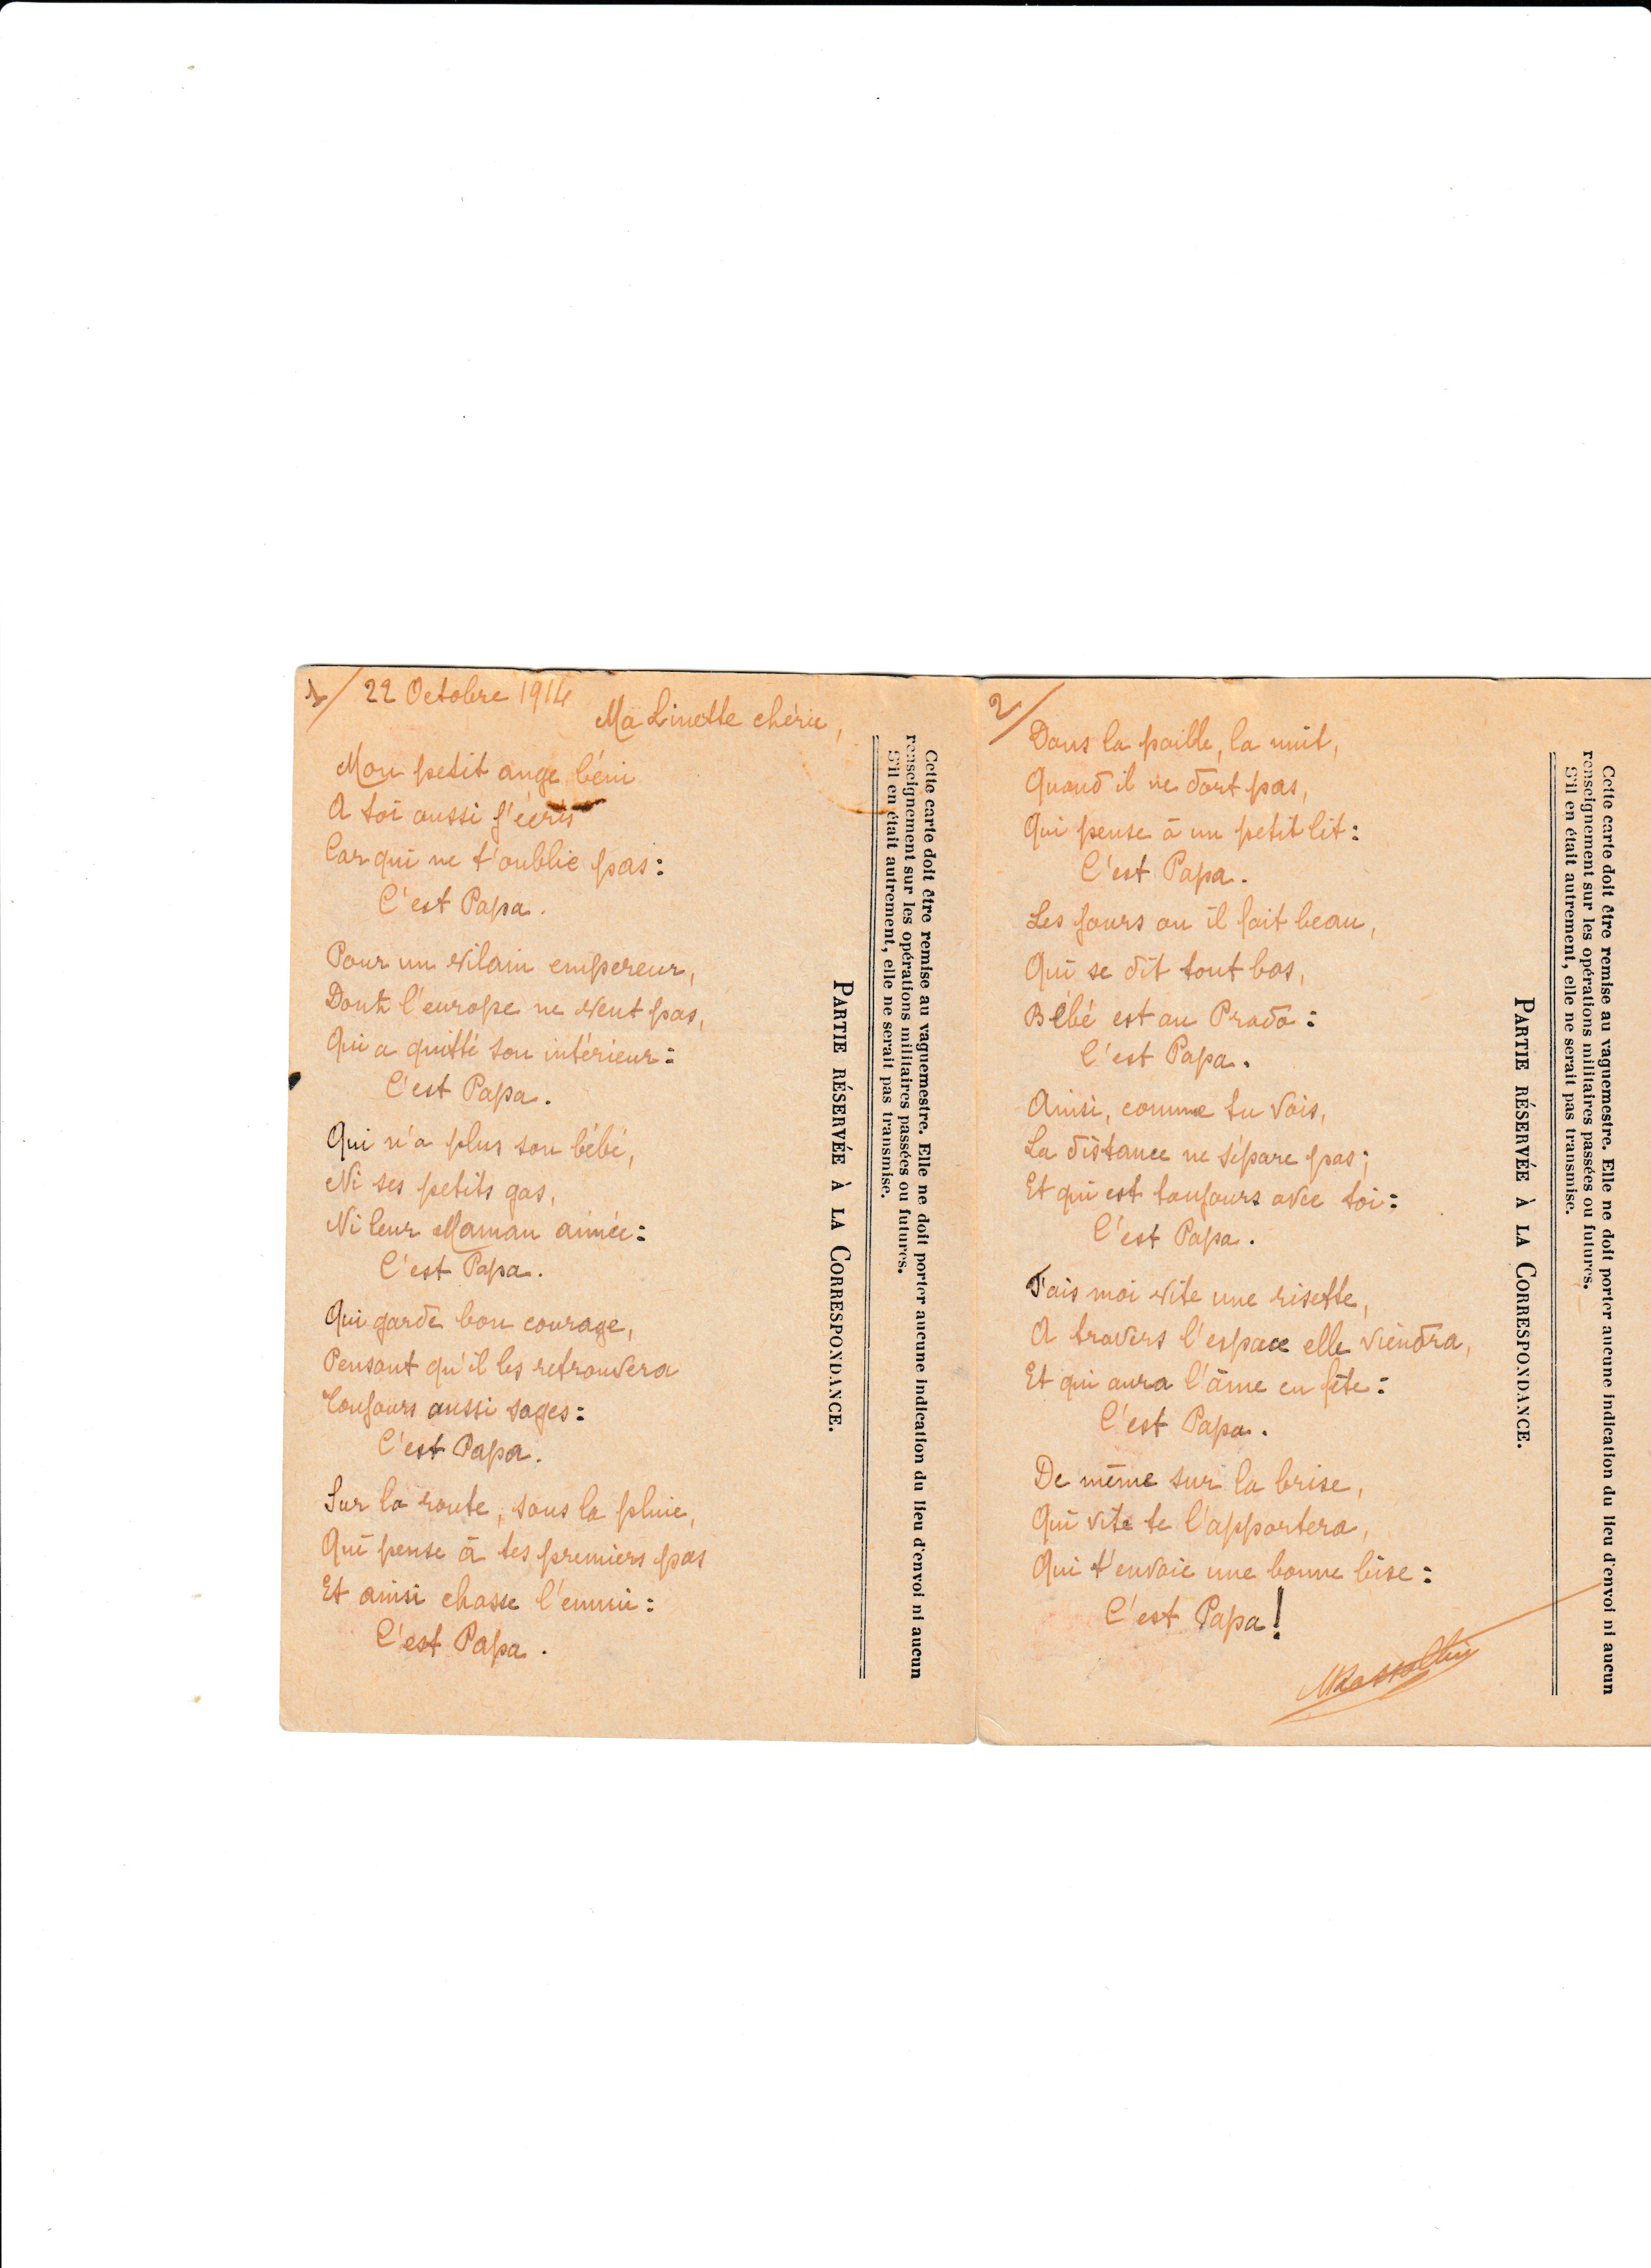 1/ 22 Octobre 1914
Ma Linette chérie,
Mon petit ange béni
A toi aussi j'écris
Car qui ne t'oublie pas :
C'est Papa.
Pour un vilain empereur,
Dont l'europe ne veut pas,
Qui a quitté son intérieur :
C'est Papa.
Qui n'a plus son bébé,
Ni ses petits gas,
Ni leur Maman aimée :
C'est Papa.
Qui garde bon courage,
Pensant qu'il les retrouvera
Toujours aussi sages :
C'est Papa.
Sur la route, sous la pluie,
Qui pense à tes premiers pas
Et ainsi chasse l'ennui :
C'est Papa.
PARTIE RÉSERVÉE À LA CORRESPONDANCE.
Cette carte doit être remise au vaguemestre. Elle ne doit porter aucune indication du lieu d'envoi ni aucun
renseignement sur les opérations militaires passées ou futures.
S'il en était autrement, elle ne serait pas transmise.
2/
Dans la paille, la nuit,
Quand il ne dort pas,
Qui pense à un petit lit :
C'est Papa.
Les jours ou il fait beau,
Qui se dit tout bas,
Bébé est au Prado :
C'est Papa.
Ainsi, comme tu vois,
La distance ne sépare pas ;
Et qui est toujours avec toi :
C'est Papa.
Fais moi vite une risette,
A travers l'espace elle viendra,
Et qui aura l'âme en fête :
C'est Papa.
De même sur la brise,
Qui vite te l'apportera,
Qui t'envoie une bonne bise :
C'est Papa !
PARTIE RÉSERVÉE À LA CORRESPONDANCE.
Cette carte doit être remise au vaguemestre. Elle ne doit porter aucune indication du lieu d'envoi ni aucun
renseignement sur les opérations militaires passées ou futures.
S'il en était autrement, elle ne serait pas transmise.